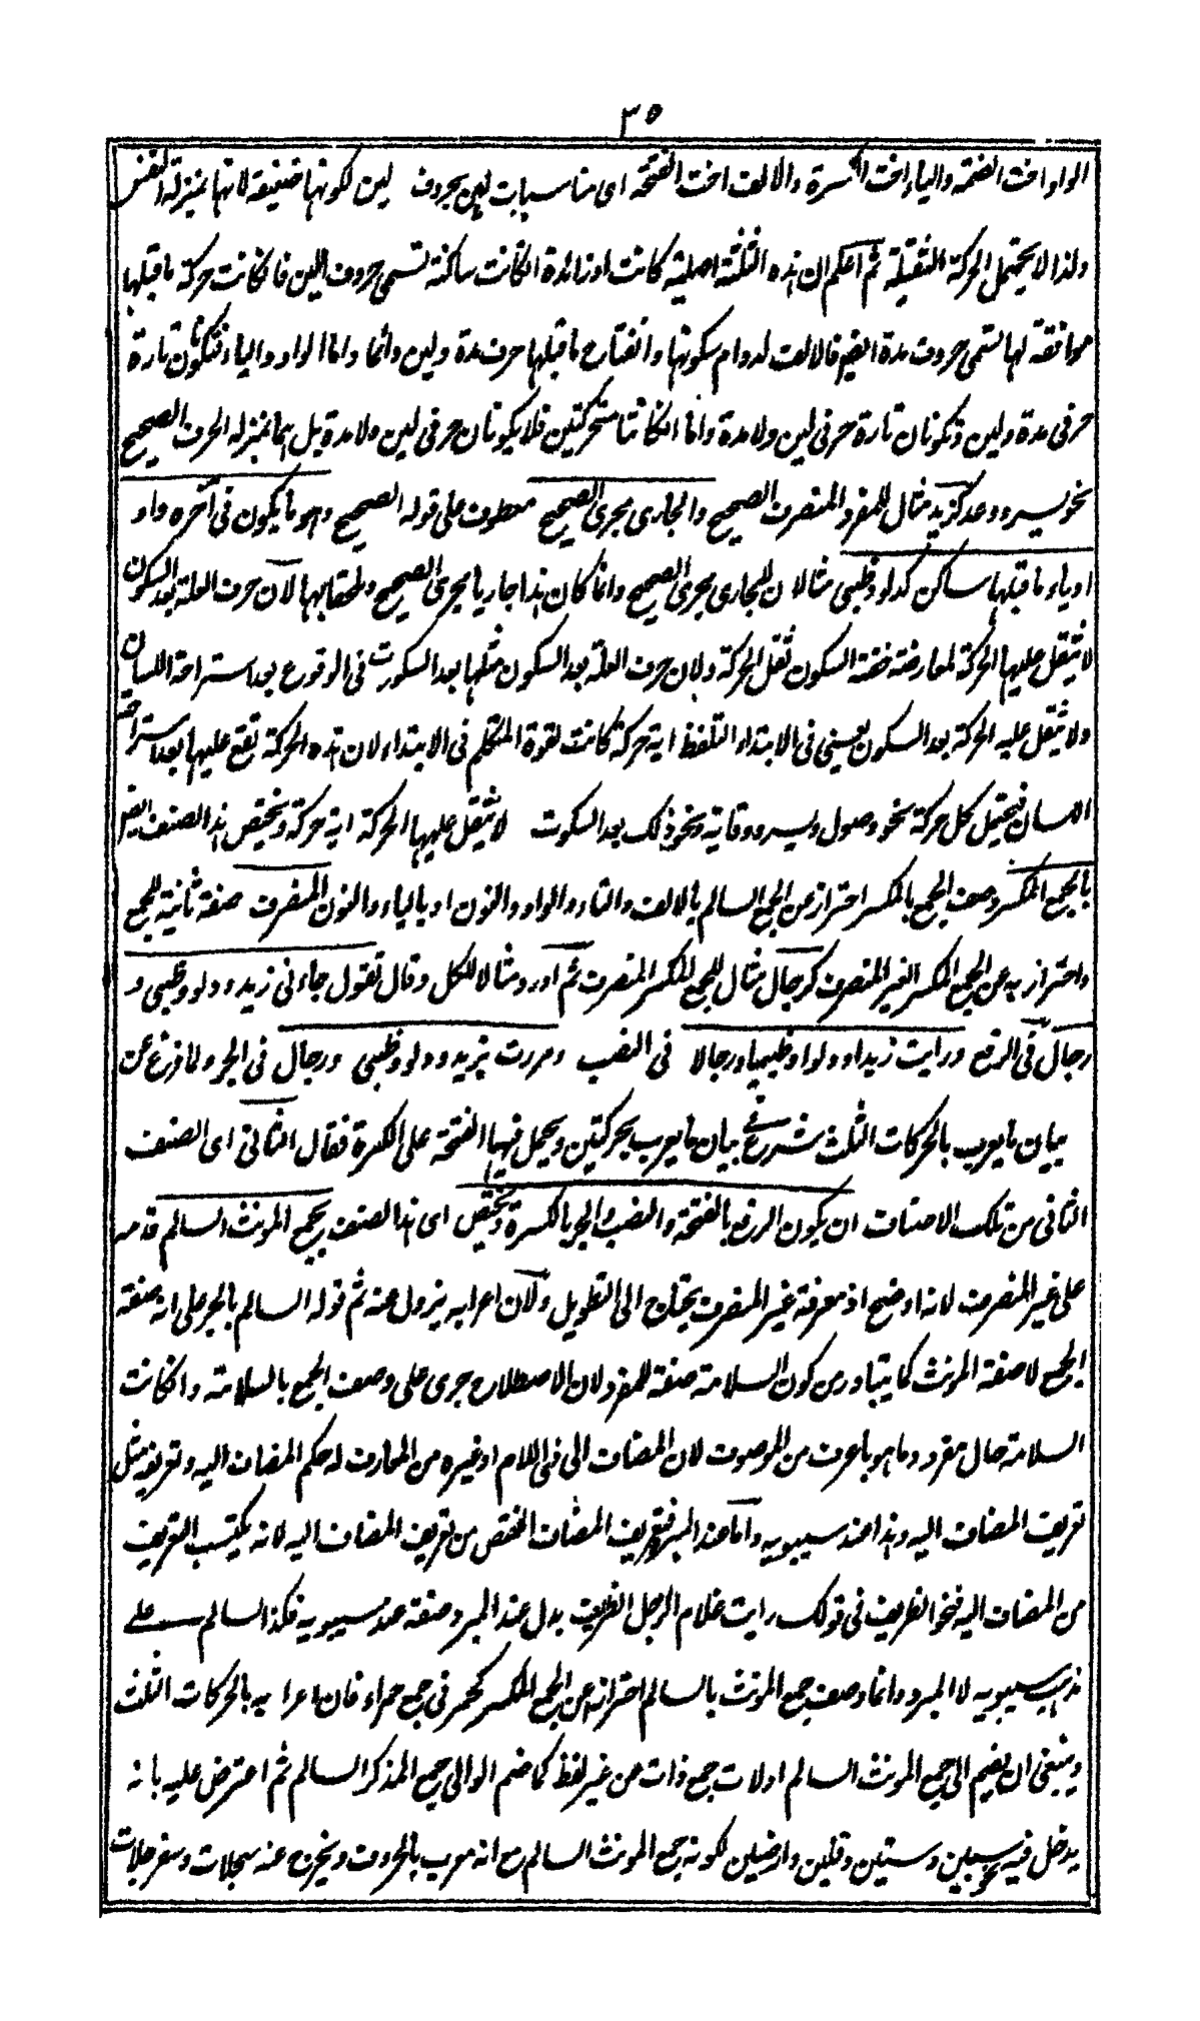 ٣٥
الواو اخت الضمة والياء اخت الكسرة والالف اخت الفتحة اى مناسبات لهن بحروف لين لكونها ضعيفة لانها بمنزلة النفس
ولذا لا يحتمل الحركة الثقيلة ثم اعلم ان هذه الثلثة اصلية كانت او زائدة ان كانت ساكنة تسمى حروف اللين فان كانت حركة ما قبلها
موافقة لها تسمى حروف مدة ايضا فالالف لدوام سكونها وانفتاح ما قبلها حرف مدة ولين دائما واما الواو والياء فتكونان تارة
حرفى مدة ولين وتكونان تارة حرفى لين ولا مدة واما ان كانتا متحركتين فلا يكونان حرفى لين ولا مدة بل هما بمنزلة الحرف الصحيح
نحو يسر ووعد كزيد مثال للمفرد المنصرف الصحيح والجارى مجرى الصحيح معطوف على قوله الصحيح وهو ما يكون فى آخره واو
او ياء ما قبلها ساكن كدلو وظبى مثالان للجارى مجرى الصحيح وانما كان هذا جاريا مجرى الصحيح وملحقا بها لان حرف العلة بعد السكون
لا تثقل عليها الحركة لمعارضة خفة السكون ثقل الحركة ولان حرف العلة بعد السكون مثلها بعد السكوت فى الوقوع بعد استراحة اللسان
ولا تثقل عليه الحركة بعد السكون يعنى فى الابتداء التلفظ اية حركة كانت لقوة المتكلم فى الابتداء لان هذه الحركة تقع عليها بعد استراحة
اللسان فيحتمل كل حركة نحو وصول ويسر ووقاية ونحو ذلك بعد السكوت لا تثقل عليها الحركة اية حركة ويختص هذا الصنف ايضا
بالجمع المكسر وصف الجمع بالمكسر احتراز عن الجمع السالم بالالف والتاء والواو والنون او بالياء والنون المنصرف صفة ثانية للجمع
واحتراز به عن الجمع المكسر الغير المنصرف كرجال مثال للجمع المكسر المنصرف ثم اورد مثالا للكل وقال تقول جاءنى زيد ودلو وظبى و
رجال فى الرفع ورايت زيدا ودلوا وظبيا ورجالا فى النصب ومررت بزيد ودلو وظبى ورجال فى الجر ولما فرغ عن
بيان ما يعرب بالحركات الثلث شرع فى بيان ما يعرب بحركتين ويحمل فيها الفتحة على الكسرة فقال الثانى اى الصنف
الثانى من تلك الاصناف ان يكون الرفع بالضمة والنصب والجر بالكسرة ويختص اى هذا الصنف بجمع المونث السالم قدمه
على غير المنصرف لانه اوضح اذ معرفة غير المنصرف يحتاج الى التطويل ولان اعرابه يزول عنه ثم قوله السالم بالجر على انه صفة
الجمع لا صفة المونث كما يتبادر من كون السلامة صفة للمفرد لان الاصطلاح جرى على وصف الجمع بالسلامة وان كانت
السلامة حال مفرد وما هو باعرف من الموصوف لان المضاف الى ذى اللام او غيره من المعارف له حكم المضاف اليه وتعريفه مثل
تعريف المضاف اليه وهذا عند سيبويه واما عند المبرد فتعريف المضاف انقص من تعريف المضاف اليه لانه يكتسب التعريف
من المضاف اليه فنحو الظريف فى قولك رايت غلام الرجل الظريف بدل عند المبرد وصفة عند سيبويه فكذا السالم على
مذهب سيبويه لا المبرد وانما وصف جمع المونث بالسالم احترازا عن الجمع المكسر كحمر فى جمع حمراء فان اعرابه بالحركات الثلث
وينبغى ان يضم الى جمع المونث السالم اولات جمع ذات من غير لفظ كما ضم الوالى جمع المذكر السالم ثم اعترض عليه بانه
يدخل فيه نحو سنين وستين وقلين وارضين لكونه جمع المونث السالم مع انه معرب بالحروف ويخرج عنه سجلات وسفرجلات